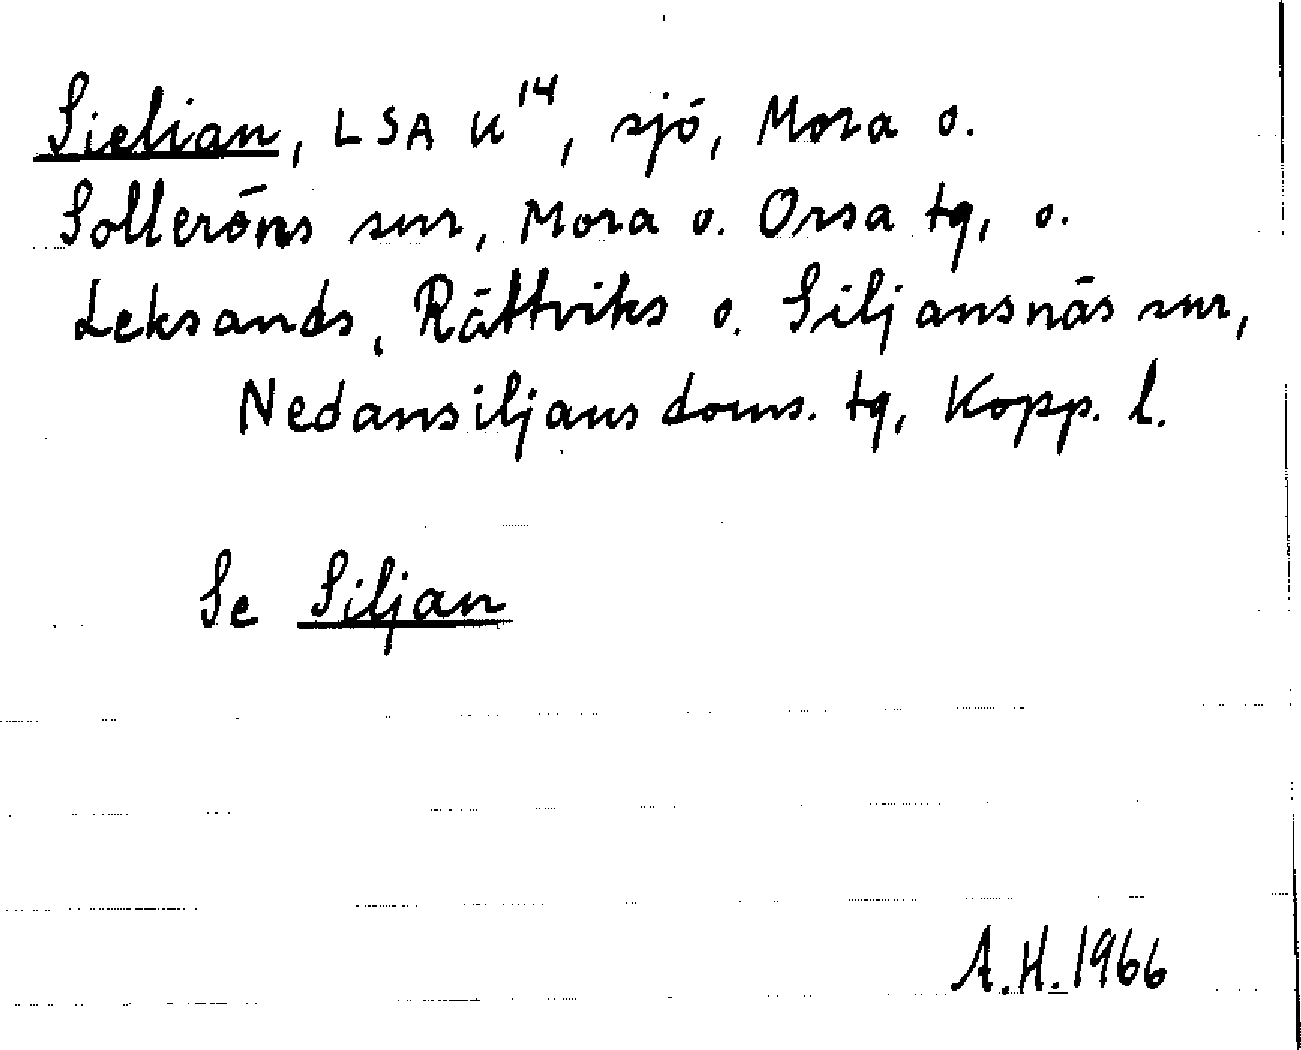 Sielian, LSA U¹⁴, sjö, Mora o.
Solleröns snr, Mora o. Orsa tg, o.
Leksands, Rättviks o. Siljansnäs snr,
Nedansiljans doms. tg, Kopp. l.
Se Siljan
A.H. 1966